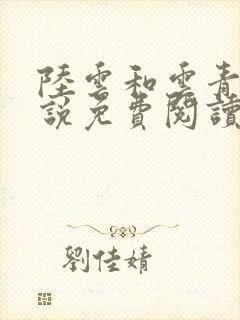 陸雲和雲青
說免費閱讀
劉佳婧